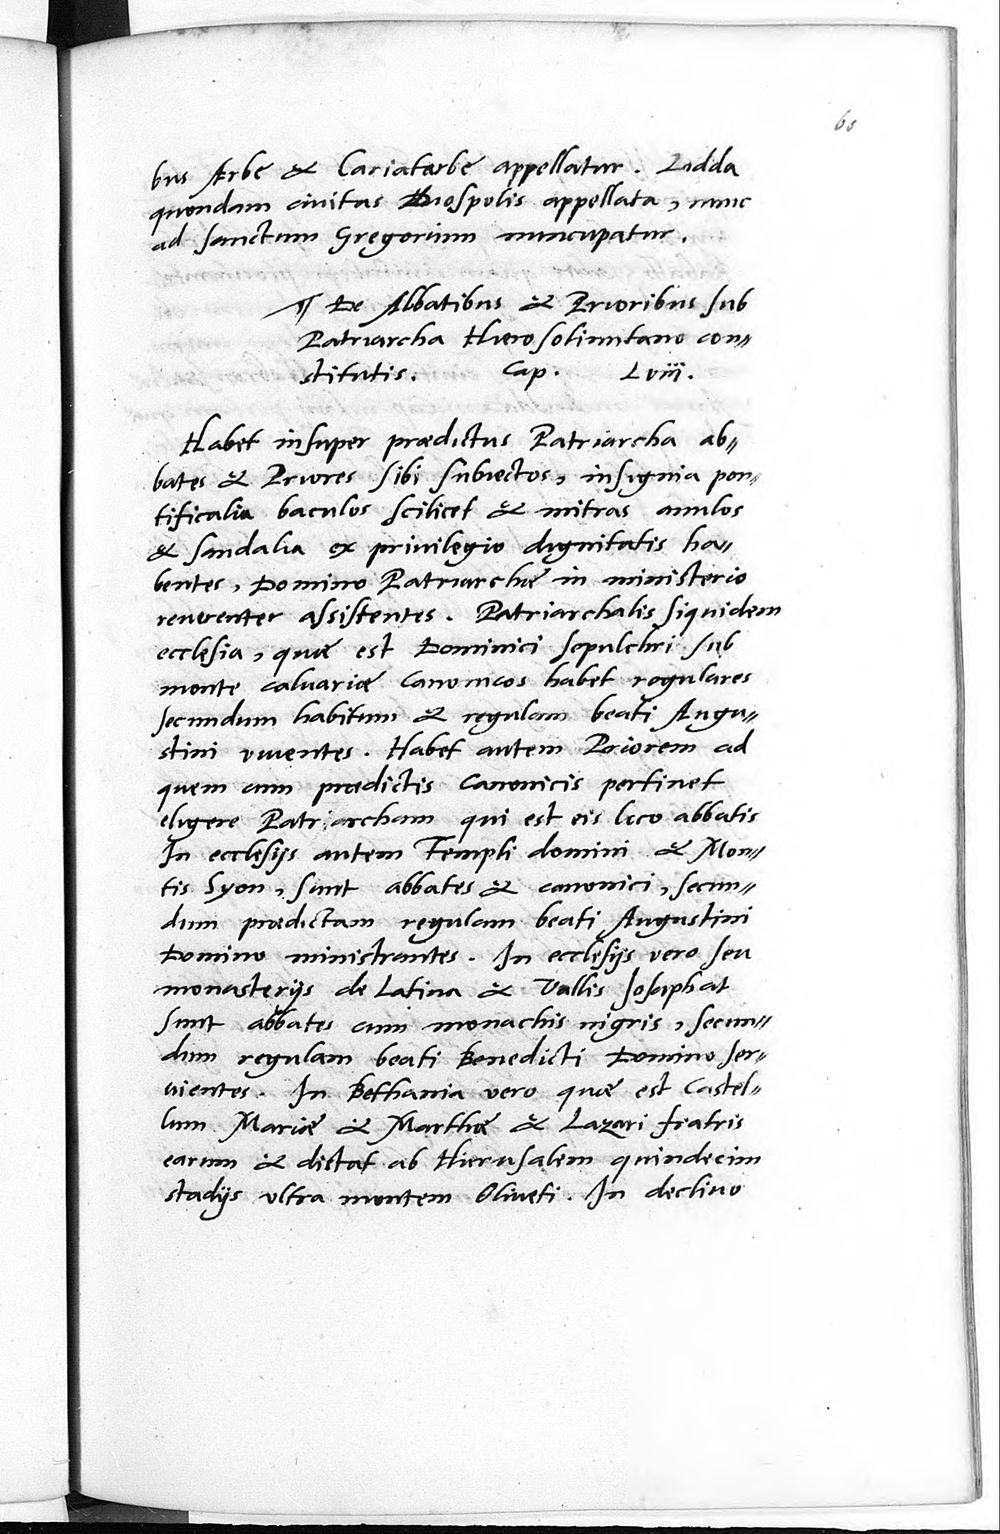 60
bus Arbe & Cariatarbe appellatur. Lidda
quondam civitas Diospolis appellata, nunc
ad sanctum Gregorium nuncupatur.
¶ De Abbatibus & Prioribus sub
Patriarcha Hierosolimitano con„
stitutis. Cap. Lviii.
Habet insuper prædictus Patriarcha ab„
bates & Priores sibi subiectos, insignia pon„
tificalia baculos scilicet & mitras anulos
& sandalia ex privilegio dignitatis ha„
bentes, Domino Patriarchæ in ministerio
reverenter assistentes. Patriarchalis siquidem
ecclesia, quæ est Dominici sepulchri sub
monte calvariæ canonicos habet regulares
secundum habitum & regulam beati Augu„
stini viventes. Habet autem Priorem ad
quem cum prædictis canonicis pertinet
eligere Patriarcham qui est eis loco abbatis
In ecclesijs autem Templi domini & Mon„
tis Syon, sunt abbates & canonici, secun„
dum prædictam regulam beati Augustini
Domino ministrantes. In ecclesijs vero seu
monasterijs de Latina & Vallis Josaphat
sunt abbates cum monachis nigris, secun„
dum regulam beati Benedicti Domino ser„
uientes. In Bethania vero quæ est Castel„
lum Mariæ & Marthæ & Lazari fratris
earum & distat ab Hierusalem quindecim
stadijs ultra montem Oliveti. In declivo